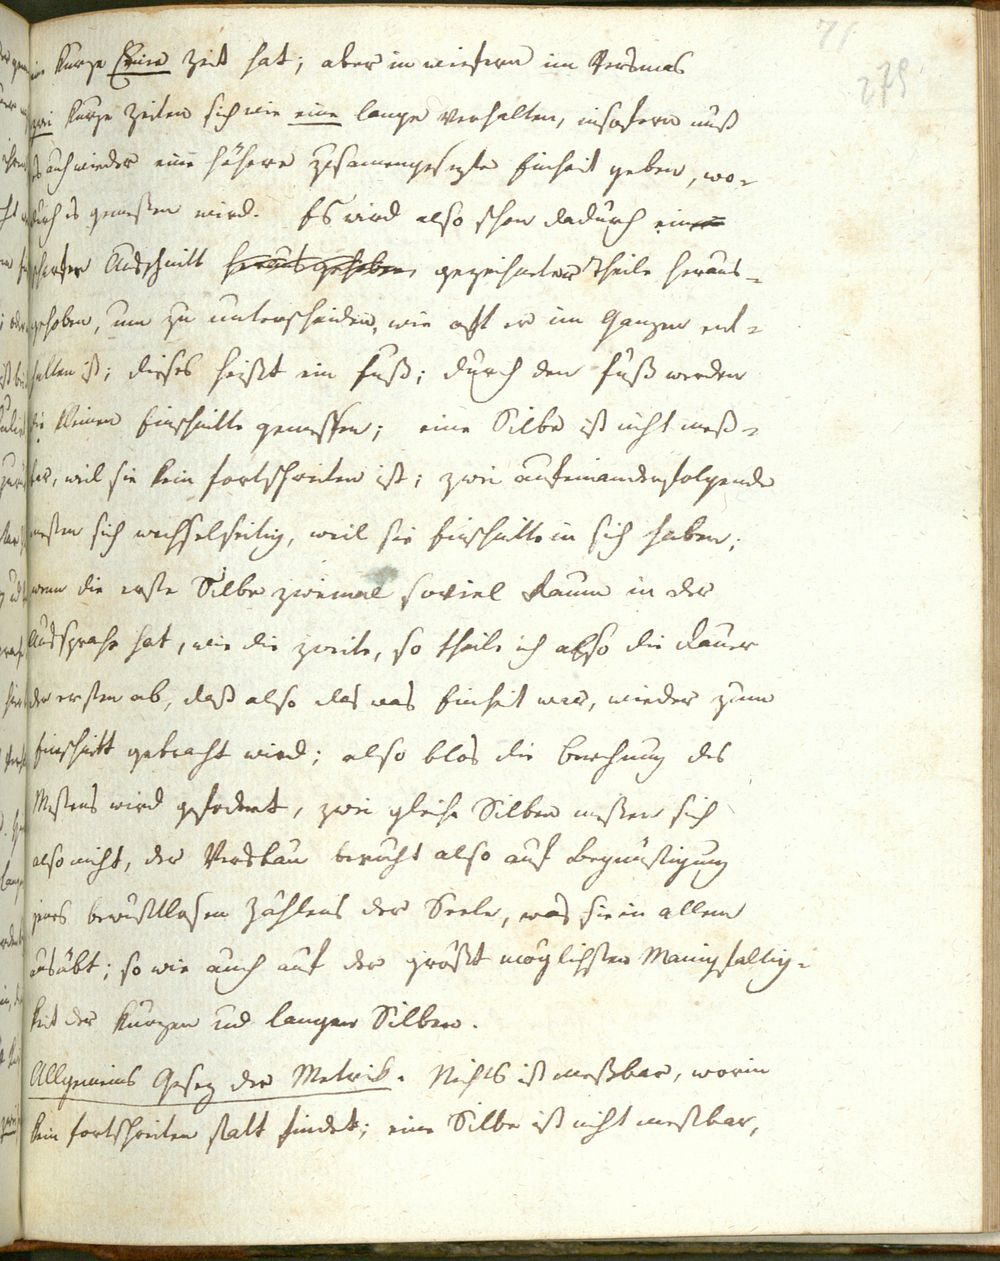 71
275
eine kurze Eine Zeit hat; aber in wiefern im Versmas
zwei kurze Zeiten sich wie eine lange verhalten, insofern muß
es auch wieder eine höhere zusamengesezte Einheit geben, wo-
durch es gemessen wird. Es wird also schon dadurch ein
scharfer Abschnitt herausgehoben gezeichneter Theile heraus-
gehoben, um zu unterscheiden, wie oft er im Ganzen ent-
halten ist; dieses heißt ein Fuß; durch den Fuß werden
die kleinen Einschnitte gemessen; eine Silbe ist nicht meß-
bar, weil sie kein Fortschreiten ist; zwei aufeinanderfolgende
messen sich wechselseitig, weil sie Einschnitte in sich haben;
wenn die erste Silbe zweimal soviel Raum in der
Aussprache hat, wie die zweite, so theile ich also die Dauer
der ersten ab, daß also das was Einheit war, wieder zum
Einschnitt gebracht wird; also blos die des
Messens wird gefodert, zwei gleiche Silben messen sich
also nicht, der Versbau beruht also auf Begnüstigung
jenes bewustlosen Zählens der Seele, was sie in allem
ausübt; so wie auch auf der größt möglichsten Manigfaltig-
keit der kurzen und langen Silben.
Allgemeines Gesez der Metrik. Nichts ist meßbar, worin
kein Fortschreiten statt findet; eine Silbe ist nicht messbar,